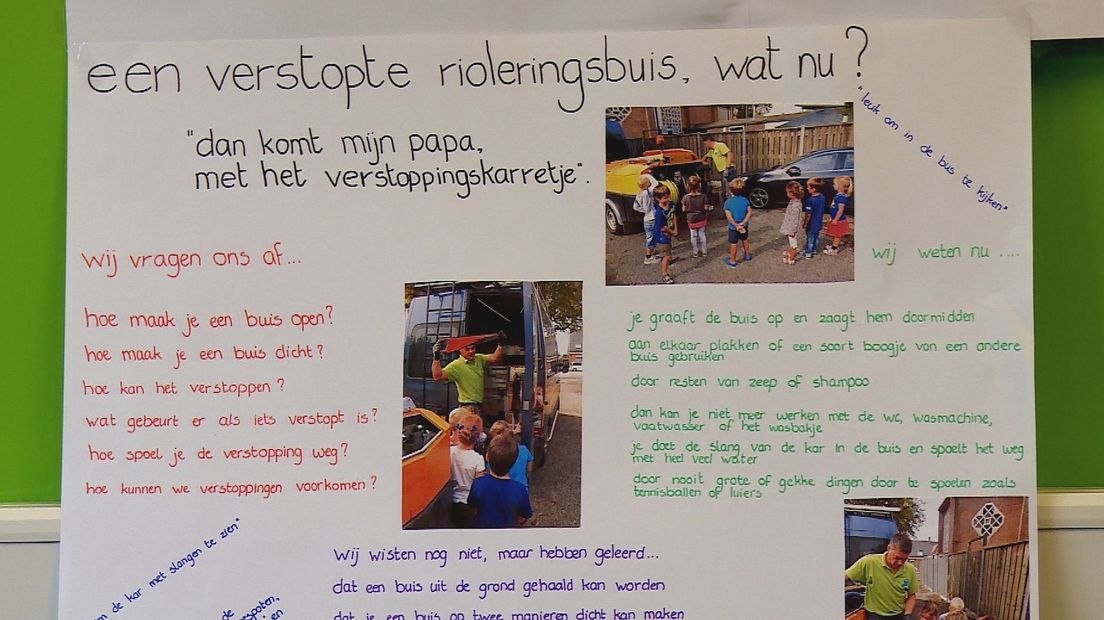 een verstopte rioleringsbuis, wat nu?
"dan komt mijn papa,
met het verstoppingskarretje".
"leuk om in de bus te kijken"
wij vragen ons af...
hoe maak je een buis open?
hoe maak je een buis dicht?
hoe kan het verstoppen?
wat gebeurt er als iets verstopt is?
hoe spoel je de verstopping weg?
hoe kunnen we verstoppingen voorkomen?
wij weten nu ....
je graaft de buis op en zaagt hem doormidden
aan elkaar plakken of een soort boogje van een andere
buis gebruiken
door resten van zeep of shampoo
dan kan je niet meer werken met de wc, wasmachine,
vaatwasser of het wasbakje
je doet de slang van de kar in de buis en spoelt het weg
met heel veel water
door nooit grote of gekke dingen door te spoelen zoals
tennisballen of luiers
om de kar met slangen te zien"
de
wij wisten nog niet, maar hebben geleerd...
dat een buis uit de grond gehaald kan worden
dat je een buis op twee manieren dicht kan maken